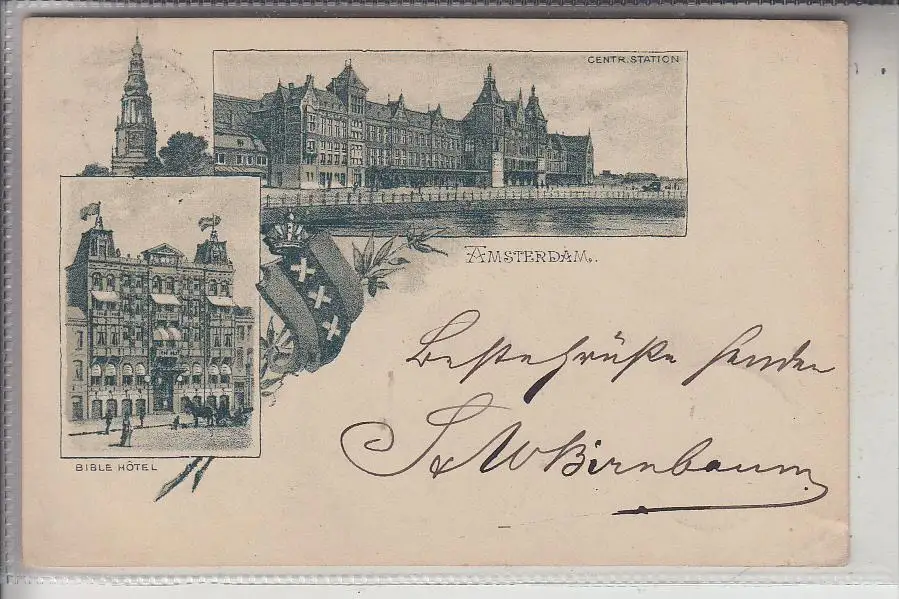 CENTR. STATION
AMSTERDAM.
BIBLE HÔTEL
Beste Grüße senden
S & W Birnbaum